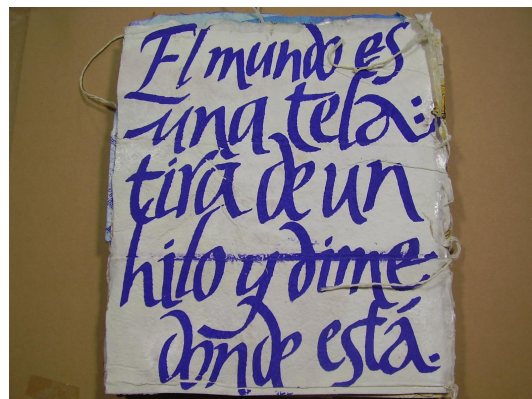 El mundo es
una tela:
tira de un
hilo y dime
dónde está.